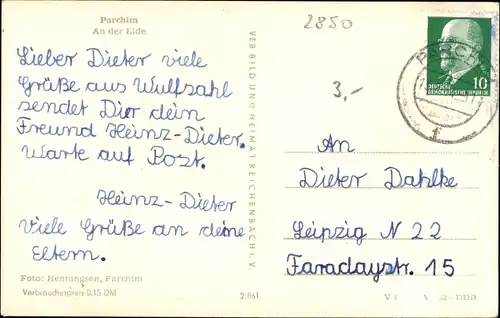 Parchim
An der Elde
Lieber Dieter viele
Grüße aus Wulfsahl
sendet Dir dein
Freund Heinz-Dieter.
Warte auf Post.
Heinz-Dieter
Viele Grüße an deine
Eltern.
Foto: Henningsen, Parchim
Verbraucherpreis 0.15 DM
VEB BILD UND HEIMAT REICHENBACH i. V.
2,861
2850
3,-
10
DEUTSCHE
DEMOKRATISCHE REPUBLIK
PARCHIM
An
Dieter Dahlke
Leipzig N 22
Faradaystr. 15